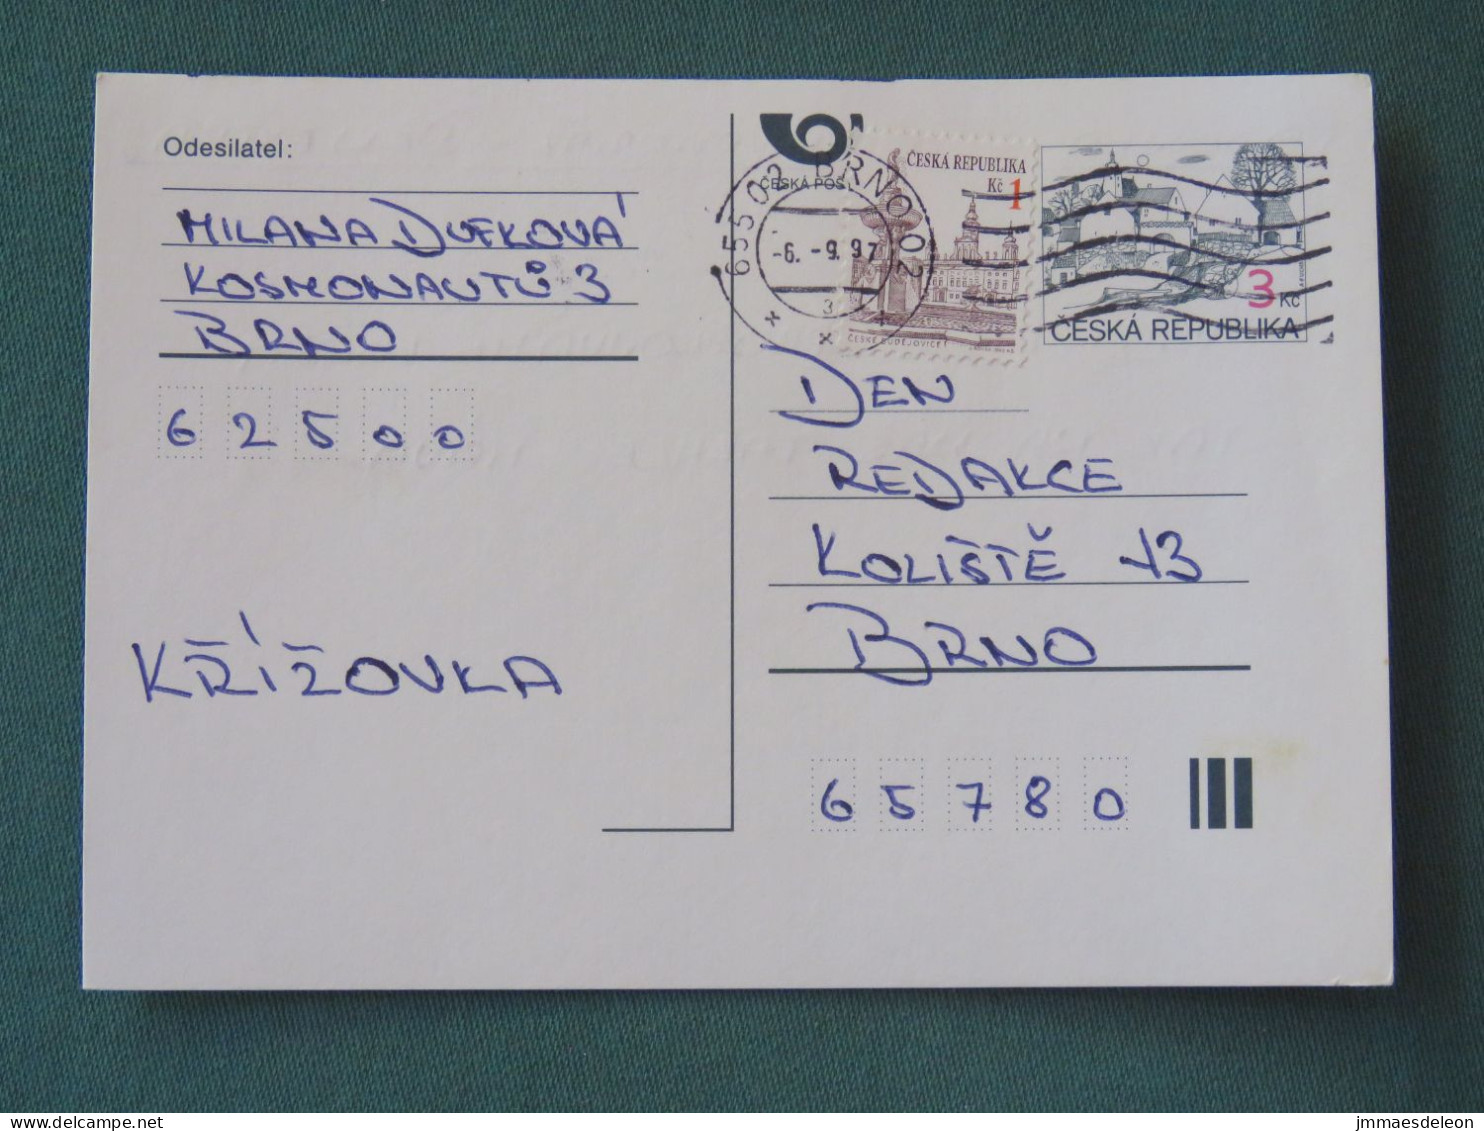 Odesilatel:
MILANA DUFKOVÁ
KOSMONAUTŮ 3
BRNO
6 2 5 0 0
KŘÍŽOVKA
ČESKÁ POŠ
655 02 BRNO 02
-6. -9. 97
ČESKÁ REPUBLIKA
Kč 1
ČESKÉ BUDĚJOVICE
3 Kč
ČESKÁ REPUBLIKA
DEN
REDAKCE
KOLIŠTĚ 13
BRNO
6 5 7 8 0
jmmaesdeleon